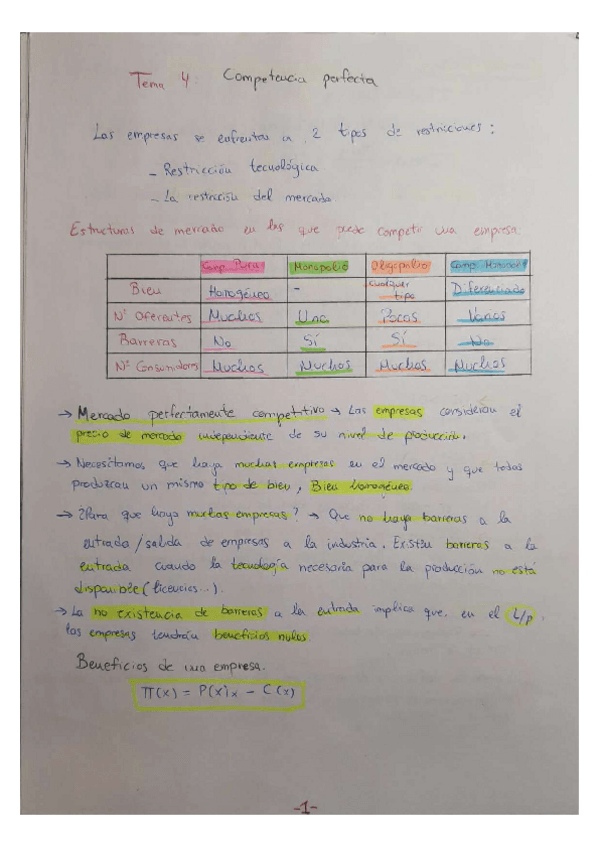 Tema 4: Competencia perfecta
Las empresas se enfrentan a 2 tipos de restricciones:
- Restricción tecnológica
- La restricción del mercado
Estructuras de mercado en las que puede competir una empresa
Comp. Pura Monopolio Oligopolio Comp. Monopol
Bien Homogéneo - Cualquier tipo Diferenciado
Nº Oferentes Muchos Uno Pocos Varios
Barreras No Sí Sí No
Nº Consumidores Muchos Muchos Muchos Muchos
→ Mercado perfectamente competitivo → Las empresas consideran el
precio de mercado independiente de su nivel de producción.
→ Necesitamos que haya muchas empresas en el mercado y que todas
produzcan un mismo tipo de bien, Bien homogéneo.
→ ¿Para que haya muchas empresas? → Que no haya barreras a la
entrada/salida de empresas a la industria. Existen barreras a la
entrada cuando la tecnología necesaria para la producción no está
disponible (licencias...).
→ La no existencia de barreras a la entrada implica que, en el L/p,
las empresas tendrán beneficios nulos.
Beneficios de una empresa.
π(x) = P(x)x - C(x)
-1-